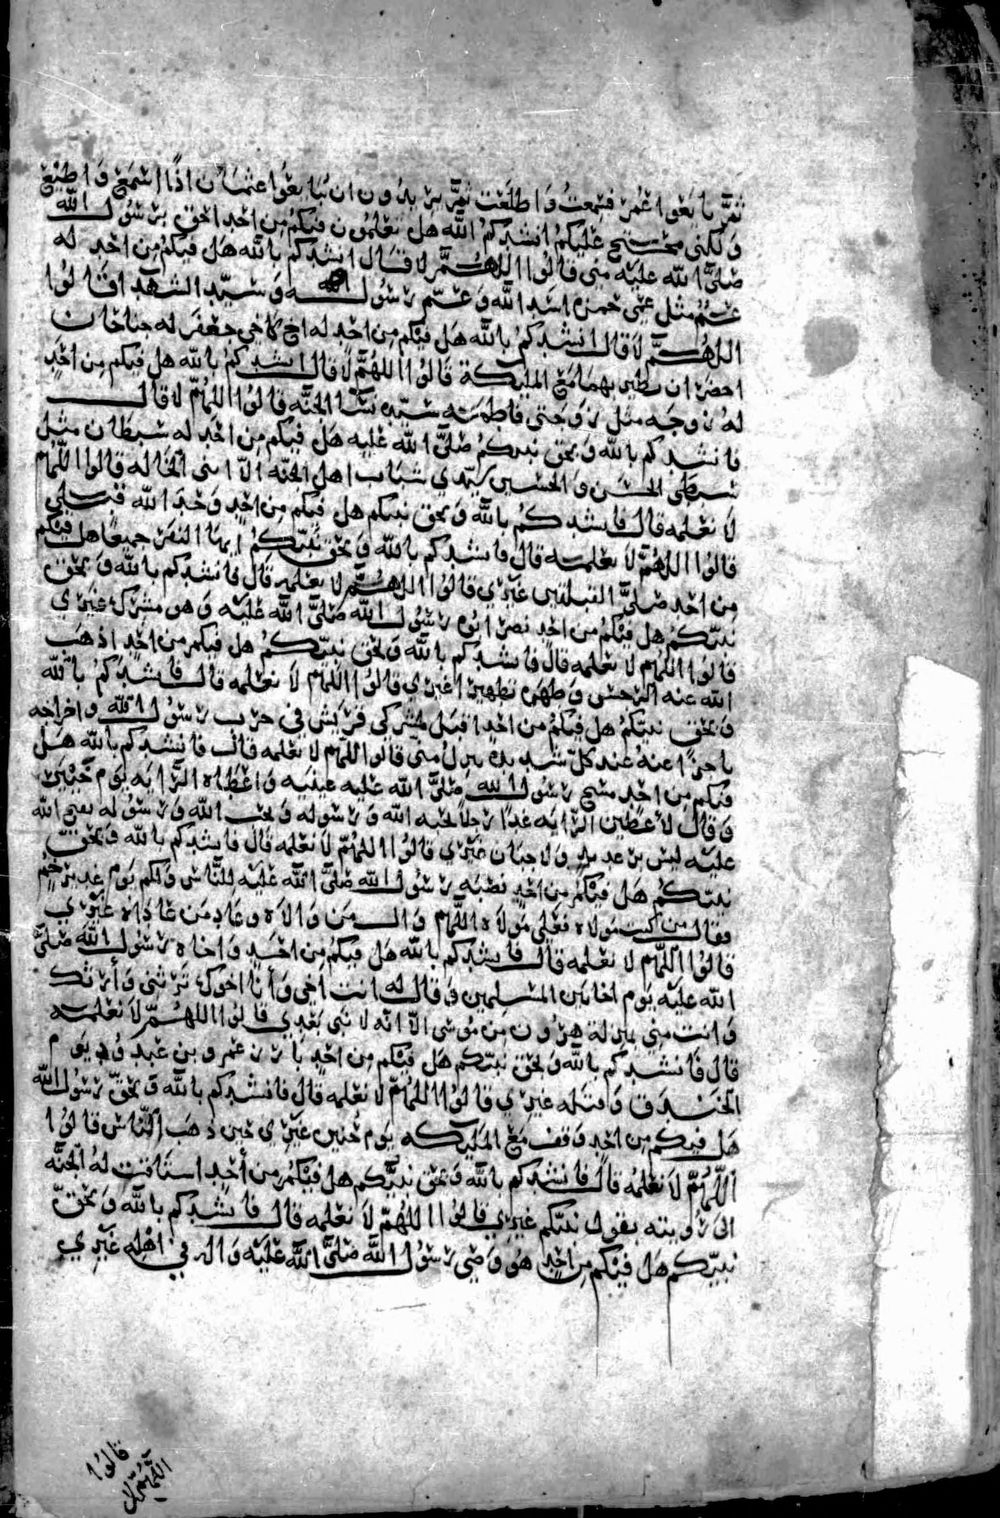 ثم بايعوا عمر فسمعت واطلعت ثم يريدون ان تبايعوا عثمان اذا اسمع واطيع
ولكني محتج عليكم انشدكم الله هل تعلمون فيكم من احد احق برسول الله
صلى الله عليه مني قالوا اللهم لا قال انشدكم بالله هل فيكم من احد له
عم مثل عمي حمزه اسد الله وعم رسول الله وسيد الشهدا قالوا
اللهم لا قال انشدكم بالله هل فيكم من احد له اخ كاخي جعفر له جناحان
اخضران يطير بهما مع المليكة قالوا اللهم لا قال انشدكم بالله هل فيكم من احد
له زوجه مثل زوجتي فاطمه سيده نسا الجنه قالوا اللهم لا قال
فانشدكم بالله وبحق نبيكم صلى الله عليه هل فيكم من احد له سبطان مثل
سبطي الحسن والحسين سيدي شباب اهل الجنه الا ابني الخاله قالوا اللهم
لا نعلمه قال فانشدكم بالله وبحق نبيكم هل فيكم من احد وحد الله قبلي
قالوا اللهم لا نعلمه قال فانشدكم بالله وبحق نبيكم ايها النفر جميعا هل فيكم
من احد صلى القبلتين غيري قالوا اللهم لا نعلمه قال فانشدكم بالله وبحق
نبيكم هل فيكم من احد نصر ابوه رسول الله صلى الله عليه وهو مشرك غيري
قالوا اللهم لا نعلمه قال فانشدكم بالله وبحق نبيكم هل فيكم من احد اذهب
الله عنه الرجس وطهره تطهيرا غيري قالوا اللهم لا نعلمه قال فانشدكم بالله
وبحق نبيكم هل فيكم من احد اقتل لمشركي قريش في حرب رسول الله واخراجه
عنه عند كل شديده منى قالوا اللهم لا نعلمه قال فانشدكم بالله هل
فيكم من احد مسح رسول الله صلى الله عليه عينيه واعطاه الرايه يوم خيبر
وقال لاعطين الرايه غدا رجلا يحبه الله ورسوله ويحب الله ورسوله يفتح الله
عليه ليس ولا جبان غيري قالوا اللهم لا نعلمه قال فانشدكم بالله وبحق
نبيكم هل فيكم من احد نصبه رسول الله صلى الله عليه للناس ولكم يوم غدير خم
فقال من كنت مولاه فعلي مولاه اللهم وال من والاه وعاد من عاداه غيري
قالوا اللهم لا نعلمه قال فانشدكم بالله هل فيكم من احد واخاه رسول الله صلى
الله عليه يوم اخا بين المسلمين وقال له انت اخي وانا اخوك ترثني وارثك
وانت مني بمنزلة هرون من موسى الا انه لا نبي بعدي قالوا اللهم لا نعلمه
قال فانشدكم بالله وبحق نبيكم هل فيكم من احد بارز عمرو بن عبد ود يوم
الخندق وقتله غيري قالوا اللهم لا نعلمه قال فانشدكم بالله وبحق رسول الله
هل فيكم من احد وقف مع المليكه يوم حنين غيري حين ذهب الناس قالوا
اللهم لا نعلمه قال فانشدكم بالله وبحق نبيكم هل فيكم من احد اشتاقت له الجنه
الى رؤيته بقول نبيكم غيري قالوا اللهم لا نعلمه قال فانشدكم بالله وبحق
نبيكم هل فيكم من احد هو وصي رسول الله صلى الله عليه واله في اهله غيري
قالوا
اللهم لا